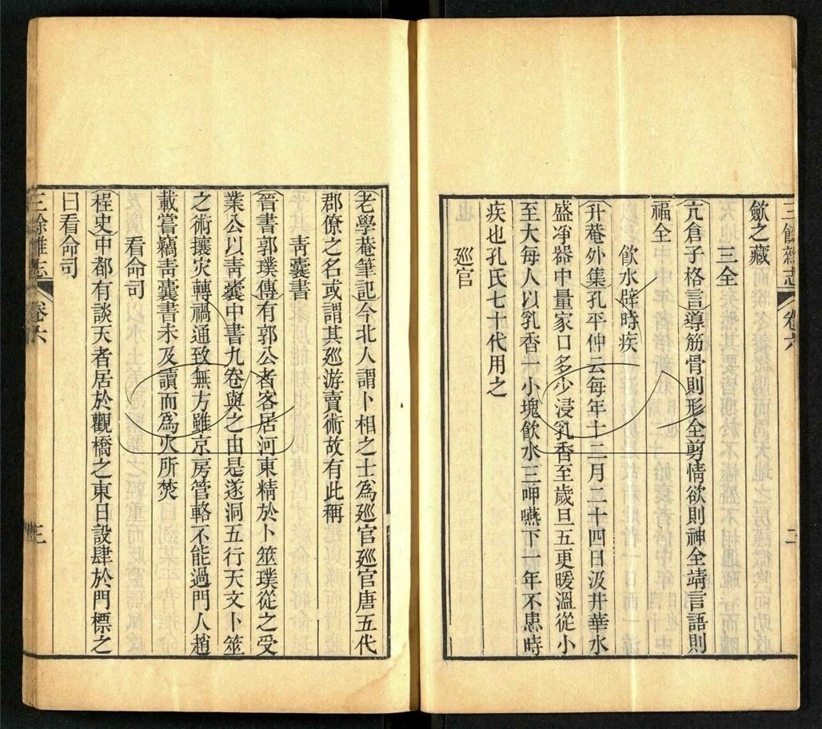 三餘雜志 卷六 二
斂之藏
三全
亢倉子格言導筋骨則形全剪情欲則神全靖言語則
福全
飲水辟時疾
升菴外集孔平仲云每年十二月二十四日汲井華水
盛淨器中量家口多少浸乳香至歲旦五更暖溫從小
至大每人以乳香一小塊飲水三呷嚥下一年不患時
疾也孔氏七十代用之
廵官
老學菴筆記今北人謂卜相之士為廵官廵官唐五代
郡僚之名或謂其廵游賣術故有此稱
靑囊書
晉書郭璞傳有郭公者客居河東精於卜筮璞從之受
業公以靑囊中書九卷與之由是遂洞五行天文卜筮
之術攘灾轉禍通致無方雖京房管輅不能過門人趙
載嘗竊靑囊書未及讀而為火所焚
看命司
桯史中都有談天者居於觀橋之東日設肆於門標之
曰看命司
三餘雜志 卷六 三